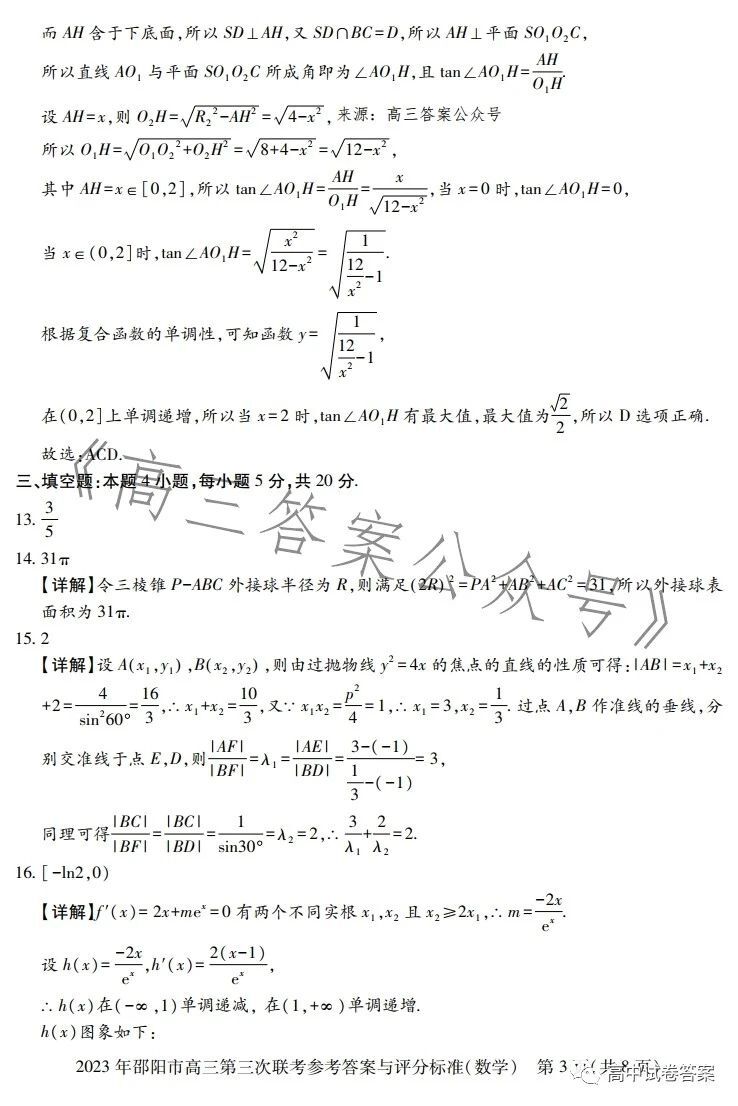 而 AH 含于下底面,所以 SD⊥AH,又 SD∩BC=D,所以 AH⊥平面 SO₁O₂C,
所以直线 AO₁ 与平面 SO₁O₂C 所成角即为∠AO₁H,且 tan∠AO₁H=AH/O₁H.
设 AH=x,则 O₂H=√(R₂²-AH²)=√(4-x²), 来源: 高三答案公众号
所以 O₁H=√(O₁O₂²+O₂H²)=√(8+4-x²)=√(12-x²),
其中 AH=x∈[0,2],所以 tan∠AO₁H=AH/O₁H=x/√(12-x²),当 x=0 时,tan∠AO₁H=0,
当 x∈(0,2]时,tan∠AO₁H=√(x²/(12-x²))=√(1/(12/x²-1)).
根据复合函数的单调性,可知函数 y=√(1/(12/x²-1)),
在(0,2]上单调递增,所以当 x=2 时,tan∠AO₁H 有最大值,最大值为√2/2,所以 D 选项正确.
故选:ACD.
三、填空题:本题 4 小题,每小题 5 分,共 20 分.
13. 3/5
14. 31π
【详解】令三棱锥 P-ABC 外接球半径为 R,则满足(2R)²=PA²+AB²+AC²=31,所以外接球表
面积为 31π.
15. 2
【详解】设 A(x₁,y₁),B(x₂,y₂),则由过抛物线 y²=4x 的焦点的直线的性质可得:|AB|=x₁+x₂
+2=4/sin²60°=16/3,∴x₁+x₂=10/3,又∵x₁x₂=p²/4=1,∴x₁=3,x₂=1/3. 过点 A,B 作准线的垂线,分
别交准线于点 E,D,则|AF|/|BF|=λ₁=|AE|/|BD|=(3-(-1))/(1/3-(-1))=3,
同理可得|BC|/|BF|=|BC|/|BD|=1/sin30°=λ₂=2,∴3/λ₁+2/λ₂=2.
16. [-ln2,0)
【详解】f′(x)=2x+meˣ=0 有两个不同实根 x₁,x₂ 且 x₂≥2x₁,∴m=-2x/eˣ.
设 h(x)=-2x/eˣ,h′(x)=2(x-1)/eˣ,
∴h(x)在(-∞,1)单调递减, 在(1,+∞)单调递增.
h(x)图象如下:
2023 年邵阳市高三第三次联考参考答案与评分标准(数学) 第 3 (共 8 页)
《高三答案公众号》
高中试卷答案